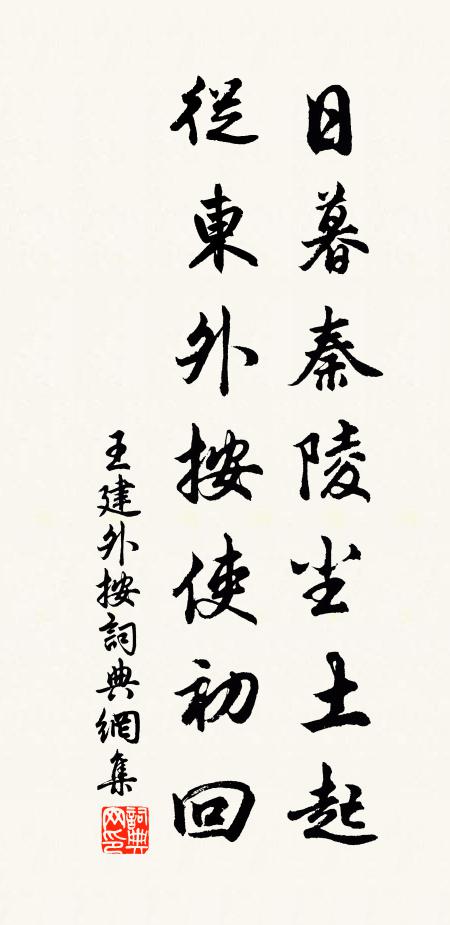 日暮秦陵尘土起
從東外按使初回
王建外按詞典網集
詞典
网印